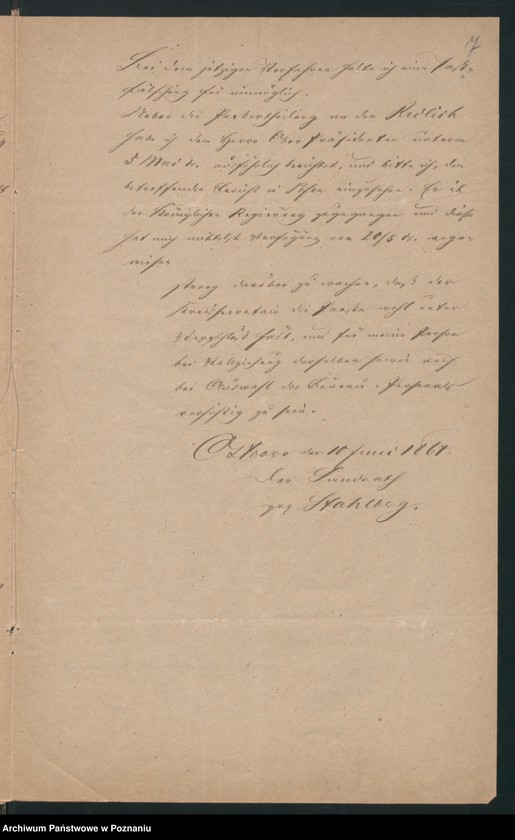 7
Bei dem jetzigen Verfahren halte ich eine Paß-
fälschung für unmöglich.
Ueber die Paßertheilung an den Redlich
habe ich dem Herrn Ober Präsidenten unterm
5 Mai c. ausführlich berichtet, und bitte ich, den
betreffenden Bericht einzusehen. Er ist
der Königlichen Regierung zugegangen und diese
hat mich mittelst Verfügung vom 20/5 c. angewiesen
streng darüber zu wachen, daß der
Kreissecretair die Paesse wohl unter
Verschluß hält, und für meine Person
bei Vollziehung derselben sowie auch
bei Auswahl des Bureau-Personals
vorsichtig zu sein.
den 10 Juni 1861.
Der Landrath
gez Stahlberg.
Archiwum Państwowe w Poznaniu